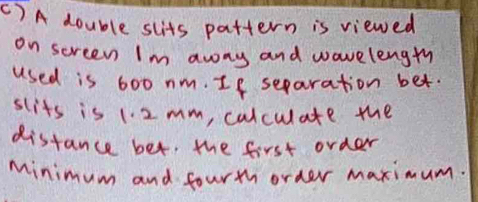 c) A double slits pattern is viewed
on screen 1m away and wavelength
used is 600 nm. If separation bet.
slits is 1.2 mm, calculate the
distance bet. the first order
minimum and fourth order maximum.